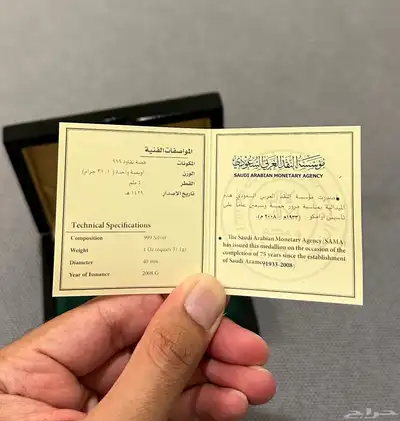 المواصفات الفنية
المكونات فضة نقاوة ٩٩٩
الوزن أونصة واحدة (٣١,١ جرام)
القطر ٤٠ ملم
تاريخ الإصدار ١٤٢٩ هـ
Technical Specifications
Composition 999 Silver
Weight 1 Oz (equals 31.1g)
Diameter 40 mm
Year of Issuance 2008 G
مؤسسة النقد العربي السعودي
SAUDI ARABIAN MONETARY AGENCY
أصدرت مؤسسة النقد العربي السعودي هذه
الميدالية بمناسبة مرور خمسة وسبعون عاماً على
تأسيس أرامكو (١٩٣٣-٢٠٠٨ م).
The Saudi Arabian Monetary Agency (SAMA)
has issued this medallion on the occasion of the
completion of 75 years since the establishment
of Saudi Aramco(1933-2008)
حراج